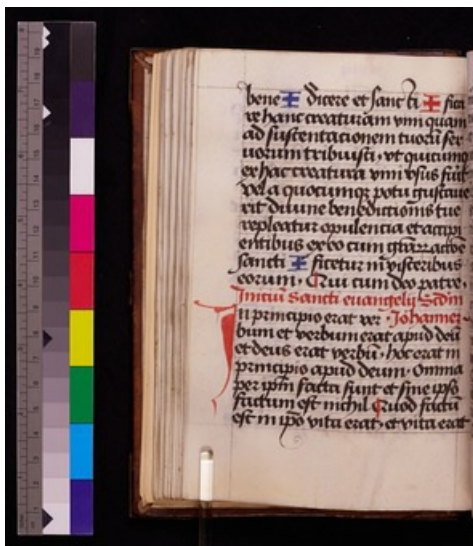 bene ✠ dicere et sancti ✠ fica
re hanc creaturam vini quam
ad sustentationem tuorū ser
uorum tribuisti · vt quicumq
ex hac creatura vini vsus fūīt
vel a quocumqȝ potu gustaue
rit diuine benedictionis tue
repleatur opulentia et accipi
entibus ex eo cum gr̄arꝝ actōe
sancti ✠ ficetur in visceribus
eorum · Qui cum deo patre ·
Iniciū sancti euangelij Scdm
In principio erat ver · Johannem
bum et verbum erat apud deū
et deus erat verbū · hoc erat in
principio apud deum · Omnia
per ipm̄ facta sunt et sine ipso
factum est nichil Quod factū
est in ipō vita erat · et vita erat